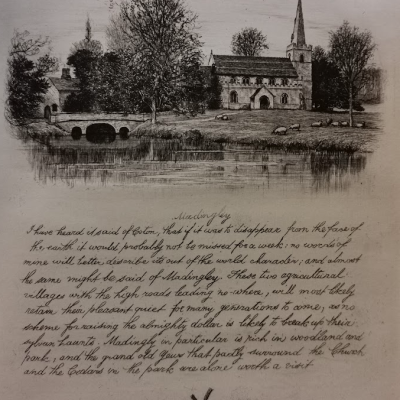 Madingley
I have heard it said of Coton, that if it was to disappear from the face of
the earth it would probably not be missed for a week: no words of
mine will better describe its out of the world character, and almost
the same might be said of Madingley. These two agricultural
villages with the high roads leading no where, will most likely
retain their pleasant quiet for many generations to come, as no
scheme for raising the almighty dollar is likely to break up their
sylvan haunts. Madingly in particular is rich in woodland and
park, and the grand old Yews that partly surround the Church
and the Cedars in the park are alone worth a visit